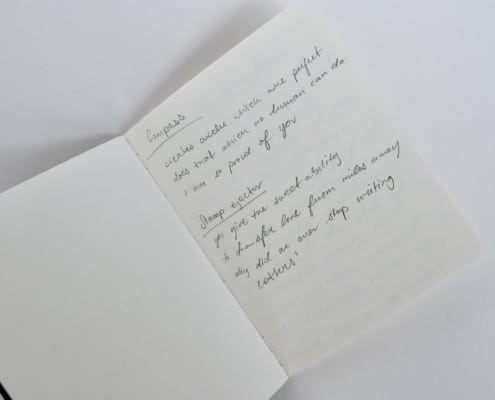 Compass
creates circles which are perfect
does that which no human can do
I am so proud of you
Stamp ejector
you give the sweet ability
to transfer love from miles away
why did we ever stop writing
letters!